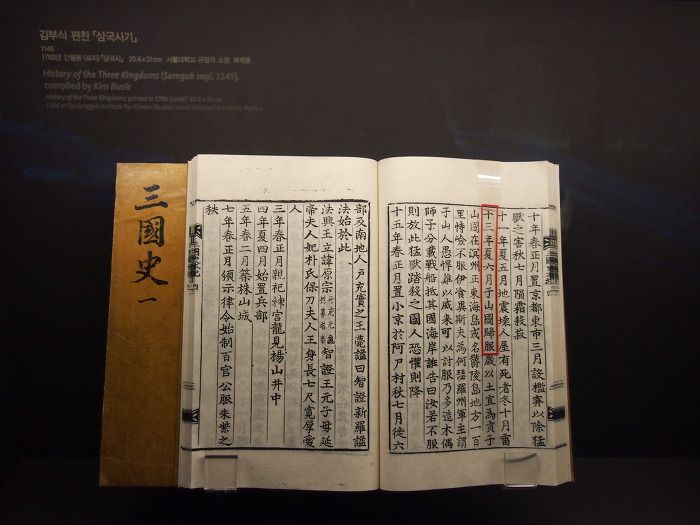 김부식 편찬 「삼국사기」
1145
1760년 간행본 (표지)『삼국사』 20.4×31cm 서울대학교 규장각 소장, 복제품
History of the Three Kingdoms (Samguk sagi, 1145),
compiled by Kim Busik
History of the Three Kingdoms, printed in 1760 (cover) 20.4 x 31 cm
Held at Kyujanggak Institute for Korean Studies, Seoul National University, Replica
三國史 一
十年春正月置京都東市三月設檻穽以除猛
獸之害秋七月隕霜殺菽
十一年夏五月地震壞人屋有死者冬十月雷
十三年夏六月于山國歸服歲以土宜爲貢于
山國在溟州正東海島或名鬱陵島地方一百
里恃嶮不服伊飡異斯夫爲何瑟羅州軍主謂
于山人愚悍難以威來可以計服乃多造木偶
師子分載戰船抵其國海岸誑告曰汝若不服
則放此猛獸踏殺之國人恐懼則降
十五年春正月置小京於阿尸村秋七月徙六
部及南地人戶充實之王薨諡曰智證新羅諡
法始於此
法興王立諱原宗冊府元龜姓募名泰智證王元子母延
帝夫人妃朴氏保刀夫人王身長七尺寬厚愛
人
三年春正月親祀神宮龍見楊山井中
四年夏四月始置兵部
五年春二月築株山城
七年春正月頒示律令始制百官公服朱紫之
秩